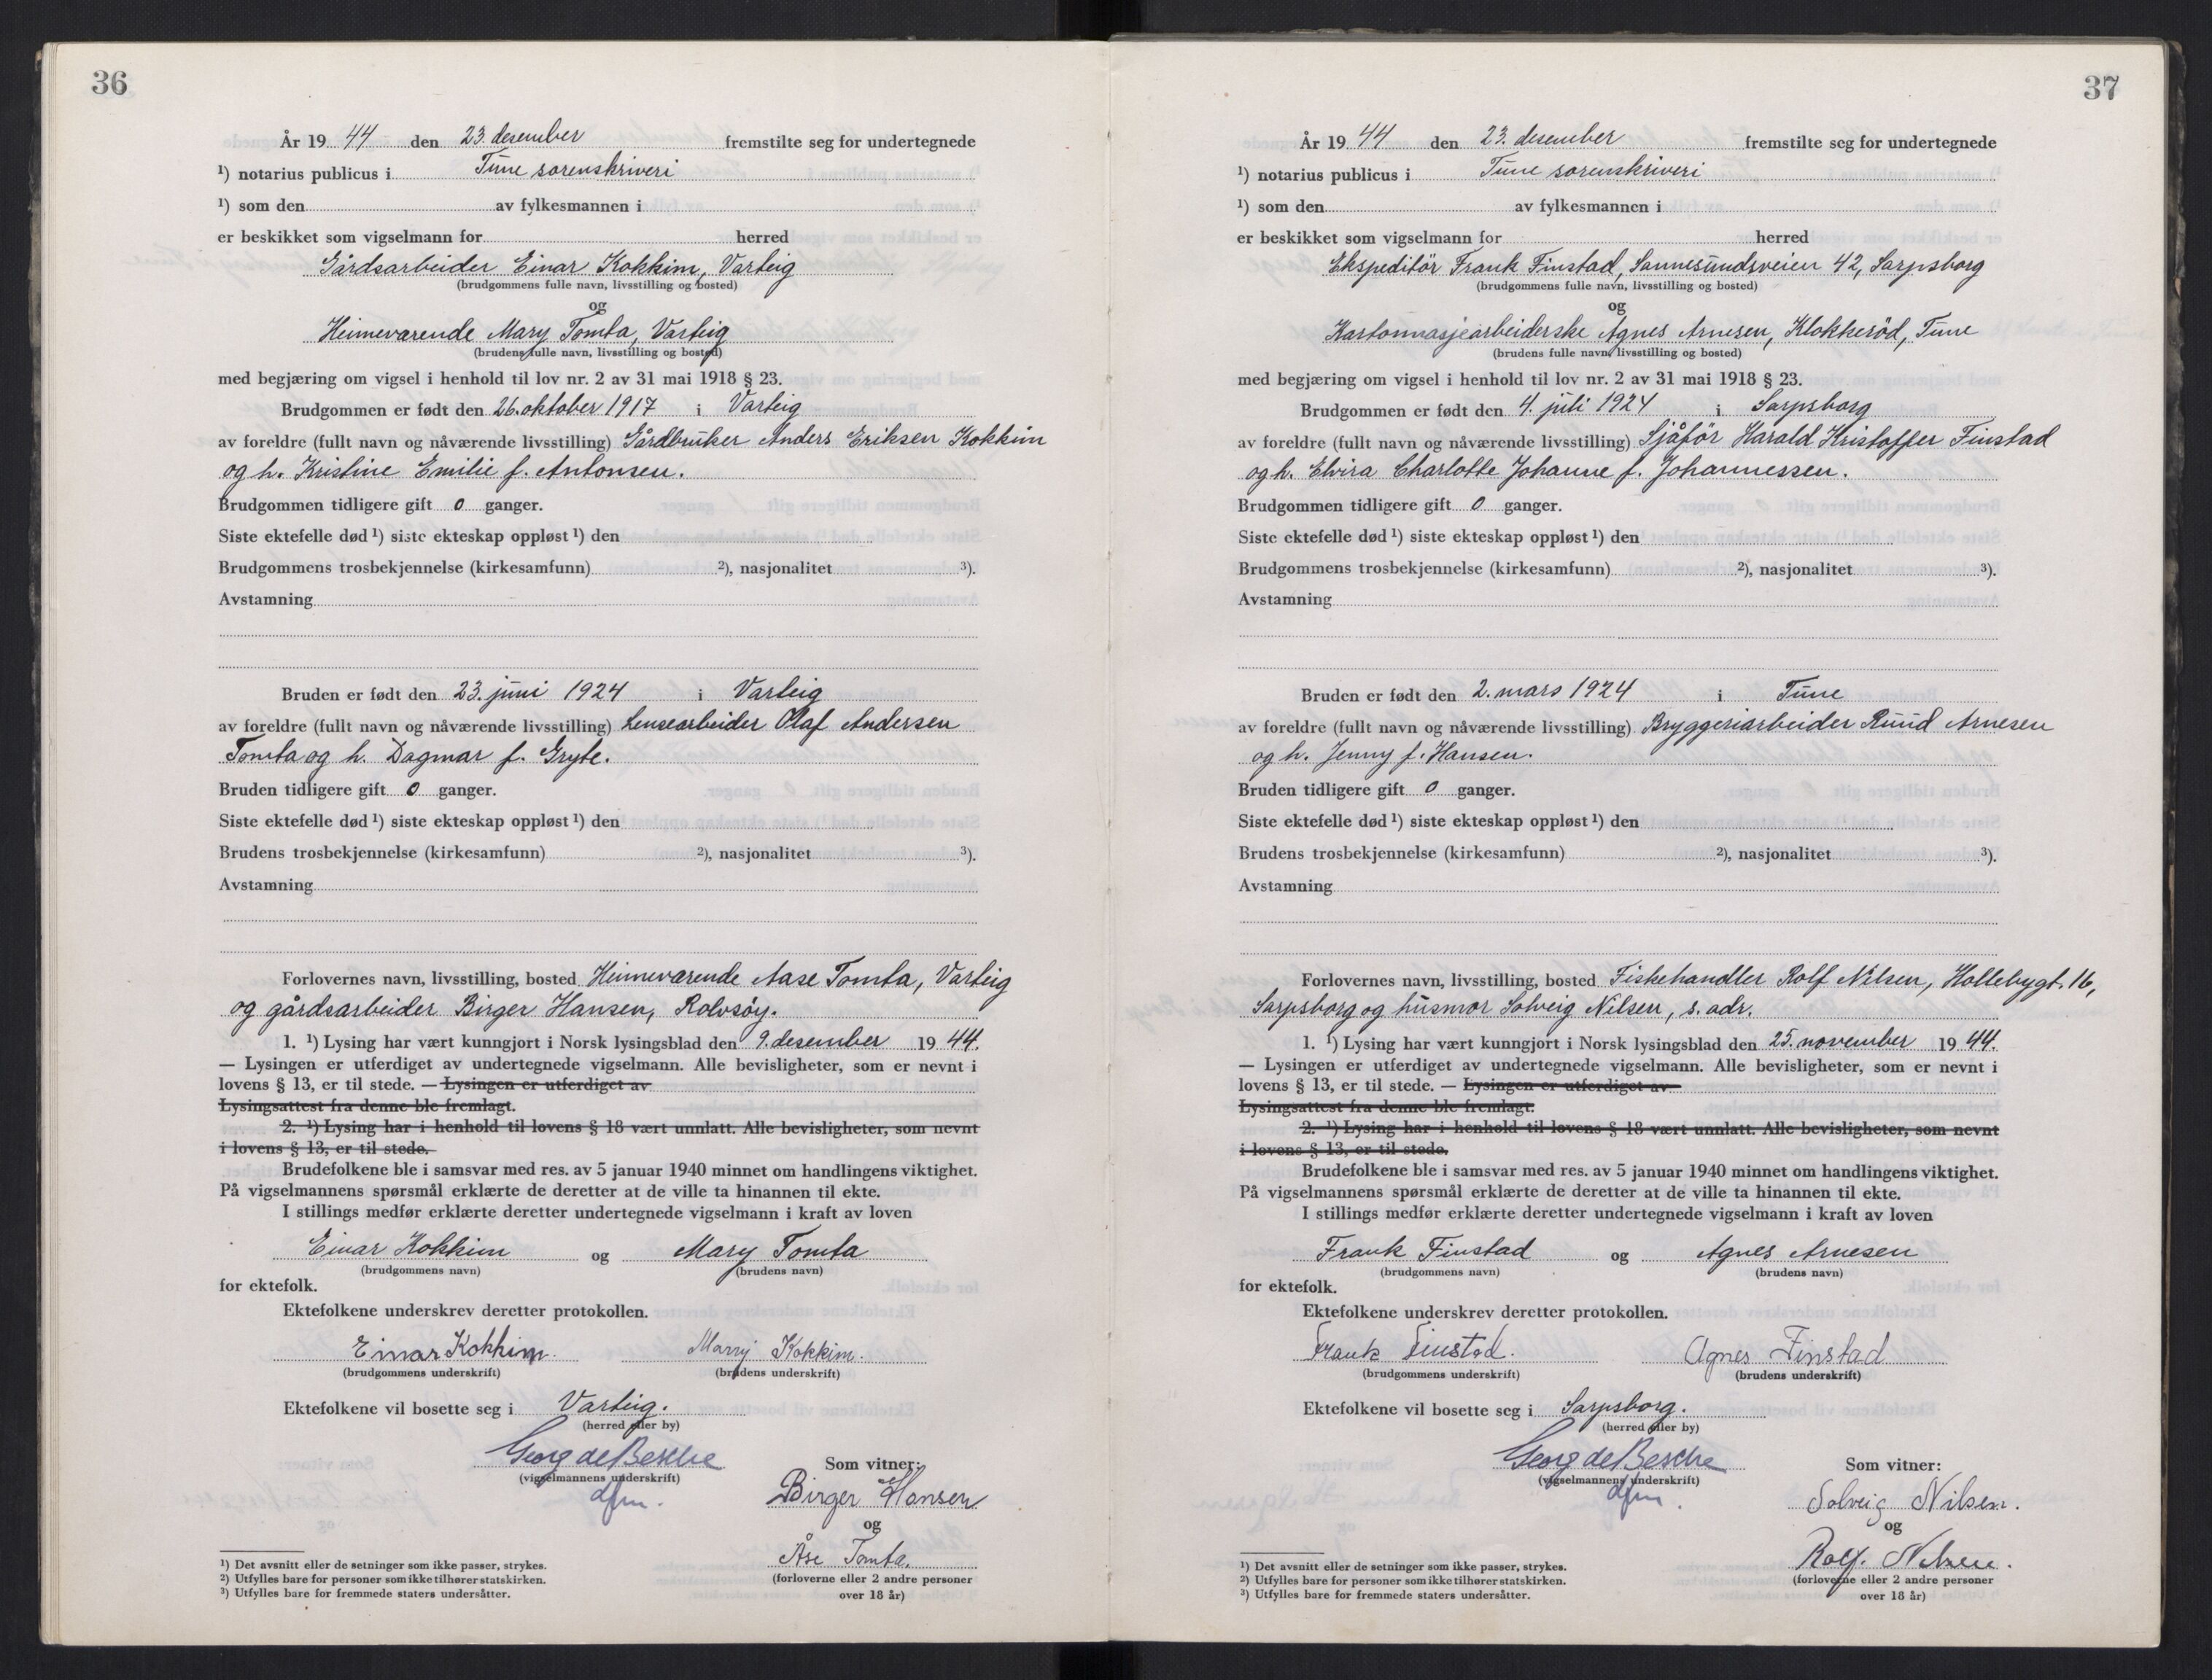 36
År 19 44 den 23. desember fremstilte seg for undertegnede
¹) notarius publicus i Tune sorenskriveri
¹) som den av fylkesmannen i
er beskikket som vigselmann for herred
Gårdsarbeider Einar Kokkim, Varteig
(brudgommens fulle navn, livsstilling og bosted)
og
Heimeværende Mary Tomta, Varteig
(brudens fulle navn, livsstilling og bosted)
med begjæring om vigsel i henhold til lov nr. 2 av 31 mai 1918 § 23.
Brudgommen er født den 26. oktober 1917 i Varteig
av foreldre (fullt navn og nåværende livsstilling) Gårdbruker Anders Eriksen Kokkim
og h. Kristine Emilie f. Antonsen.
Brudgommen tidligere gift 0 ganger.
Siste ektefelle død ¹) siste ekteskap oppløst ¹) den
Brudgommens trosbekjennelse (kirkesamfunn) ²), nasjonalitet ³).
Avstamning
Bruden er født den 23. juni 1924 i Varteig
av foreldre (fullt navn og nåværende livsstilling) Lensearbeider Olaf Andersen
Tomta og h. Dagmar f. Gryte.
Bruden tidligere gift 0 ganger.
Siste ektefelle død ¹) siste ekteskap oppløst ¹) den
Brudens trosbekjennelse (kirkesamfunn) ²), nasjonalitet ³).
Avstamning
Forlovernes navn, livsstilling, bosted Heimeværende Aase Tomta, Varteig
og gårdsarbeider Birger Hansen, Rolvsöy.
1. ¹) Lysing har vært kunngjort i Norsk lysingsblad den 9. desember 19 44.
— Lysingen er utferdiget av undertegnede vigselmann. Alle bevisligheter, som er nevnt i
lovens § 13, er til stede. — Lysingen er utferdiget av
Lysingsattest fra denne ble fremlagt.
2. ¹) Lysing har i henhold til lovens § 18 vært unnlatt. Alle bevisligheter, som nevnt
i lovens § 13, er til stede.
Brudefolkene ble i samsvar med res. av 5 januar 1940 minnet om handlingens viktighet.
På vigselmannens spørsmål erklærte de deretter at de ville ta hinannen til ekte.
I stillings medfør erklærte deretter undertegnede vigselmann i kraft av loven
Einar Kokkim og Mary Tomta
(brudgommens navn) (brudens navn)
for ektefolk.
Ektefolkene underskrev deretter protokollen.
Einar Kokkim. Marry Kokkim.
(brudgommens underskrift) (brudens underskrift)
Ektefolkene vil bosette seg i Varteig.
(herred eller by)
Georg de Besche
(vigselmannens underskrift)
dfm.
Som vitner:
Birger Hansen
og
Åse Tomta.
(forloverne eller 2 andre personer
over 18 år)
¹) Det avsnitt eller de setninger som ikke passer, strykes.
²) Utfylles bare for personer som ikke tilhører statskirken.
³) Utfylles bare for fremmede staters undersåtter.
37
År 19 44 den 23. desember fremstilte seg for undertegnede
¹) notarius publicus i Tune sorenskriveri
¹) som den av fylkesmannen i
er beskikket som vigselmann for herred
Ekspeditör Frank Finstad, Sannesundsveien 42, Sarpsborg
(brudgommens fulle navn, livsstilling og bosted)
og
Kartonnasjearbeiderske Agnes Arnesen, Klokkeröd, Tune
(brudens fulle navn, livsstilling og bosted)
med begjæring om vigsel i henhold til lov nr. 2 av 31 mai 1918 § 23.
Brudgommen er født den 4. juli 1924 i Sarpsborg
av foreldre (fullt navn og nåværende livsstilling) Sjåför Harald Kristoffer Finstad
og h. Elvira Charlotte Johanne f. Johannessen.
Brudgommen tidligere gift 0 ganger.
Siste ektefelle død ¹) siste ekteskap oppløst ¹) den
Brudgommens trosbekjennelse (kirkesamfunn) ²), nasjonalitet ³).
Avstamning
Bruden er født den 2. mars 1924 i Tune
av foreldre (fullt navn og nåværende livsstilling) Bryggeriarbeider Ruud Arnesen
og h. Jenny f. Hansen.
Bruden tidligere gift 0 ganger.
Siste ektefelle død ¹) siste ekteskap oppløst ¹) den
Brudens trosbekjennelse (kirkesamfunn) ²), nasjonalitet ³).
Avstamning
Forlovernes navn, livsstilling, bosted Fiskehandler Rolf Nilsen, Hollebygt. 16,
Sarpsborg og husmor Solveig Nilsen, s. adr.
1. ¹) Lysing har vært kunngjort i Norsk lysingsblad den 25. november 19 44.
— Lysingen er utferdiget av undertegnede vigselmann. Alle bevisligheter, som er nevnt i
lovens § 13, er til stede. — Lysingen er utferdiget av
Lysingsattest fra denne ble fremlagt.
2. ¹) Lysing har i henhold til lovens § 18 vært unnlatt. Alle bevisligheter, som nevnt
i lovens § 13, er til stede.
Brudefolkene ble i samsvar med res. av 5 januar 1940 minnet om handlingens viktighet.
På vigselmannens spørsmål erklærte de deretter at de ville ta hinannen til ekte.
I stillings medfør erklærte deretter undertegnede vigselmann i kraft av loven
Frank Finstad og Agnes Arnesen
(brudgommens navn) (brudens navn)
for ektefolk.
Ektefolkene underskrev deretter protokollen.
Frank Finstad. Agnes Finstad
(brudgommens underskrift) (brudens underskrift)
Ektefolkene vil bosette seg i Sarpsborg.
(herred eller by)
Georg de Besche
(vigselmannens underskrift)
dfm.
Som vitner:
Solveig Nilsen.
og
Rolf. Nilsen.
(forloverne eller 2 andre personer
over 18 år)
¹) Det avsnitt eller de setninger som ikke passer, strykes.
²) Utfylles bare for personer som ikke tilhører statskirken.
³) Utfylles bare for fremmede staters undersåtter.